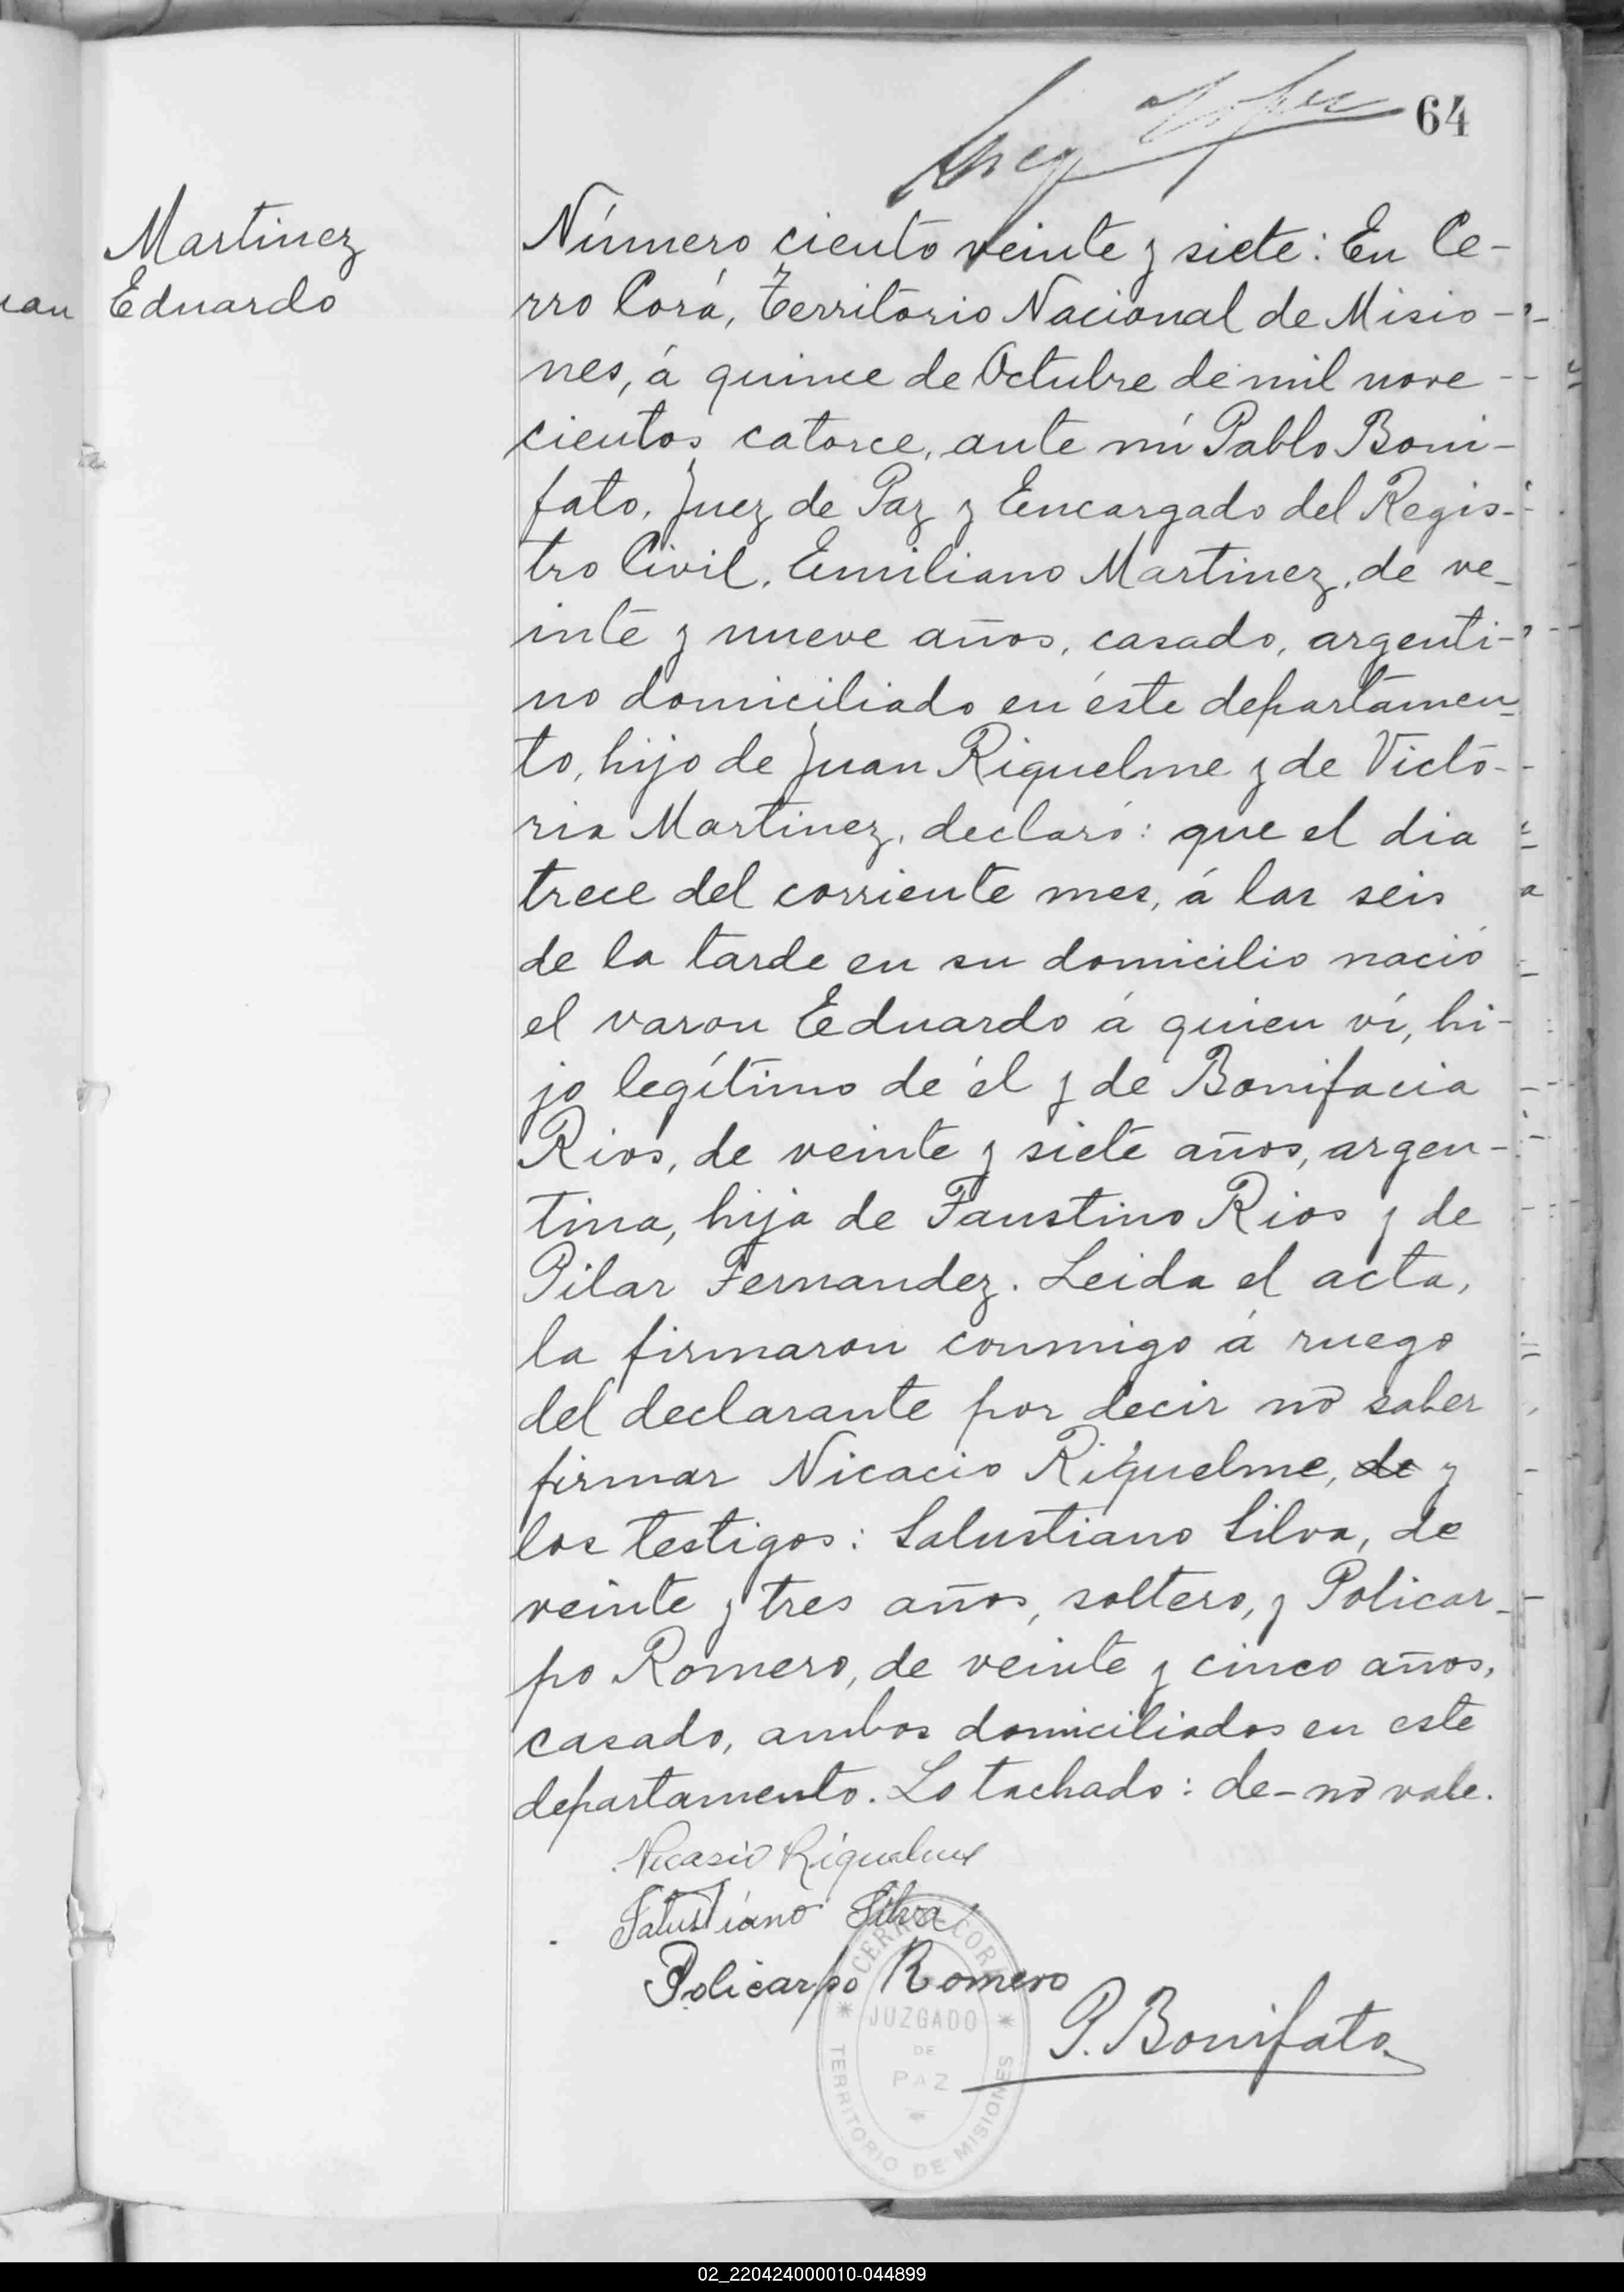 64
Martinez
Eduardo
Número ciento veinte y siete: En Ce-
rro Corá, Territorio Nacional de Misio-
nes, á quince de Octubre de mil nove
cientos catorce, ante mí Pablo Boni-
fato, Juez de Paz y Encargado del Regis-
tro Civil, Emiliano Martinez, de ve-
inte y nueve años, casado, argenti-
no domiciliado en éste departamen-
to, hijo de Juan Riquelme y de Victo-
ria Martinez, declaró: que el dia
trece del corriente mes, á las seis
de la tarde en su domicilio nació
el varon Eduardo á quien ví, hi-
jo legítimo de él y de Bonifacia
Rios, de veinte y siete años, argen-
tina, hija de Faustino Rios y de
Pilar Fernandez. Leida el acta,
la firmaron conmigo á ruego
del declarante por decir nó saber
firmar Nicacio Riquelme, de y
los testigos: Salustiano Silva, de
veinte y tres años, soltero, y Policar-
po Romero, de veinte y cinco años,
casado, ambos domiciliados en este
departamento. Lo tachado: de-nó vale.
Nicasio Riquelme
Salustiano Silva
Policarpo Romero
P. Bonifato
CERRO CORÁ
JUZGADO
DE
PAZ
TERRITORIO DE MISIONES
02_220424000010-044899